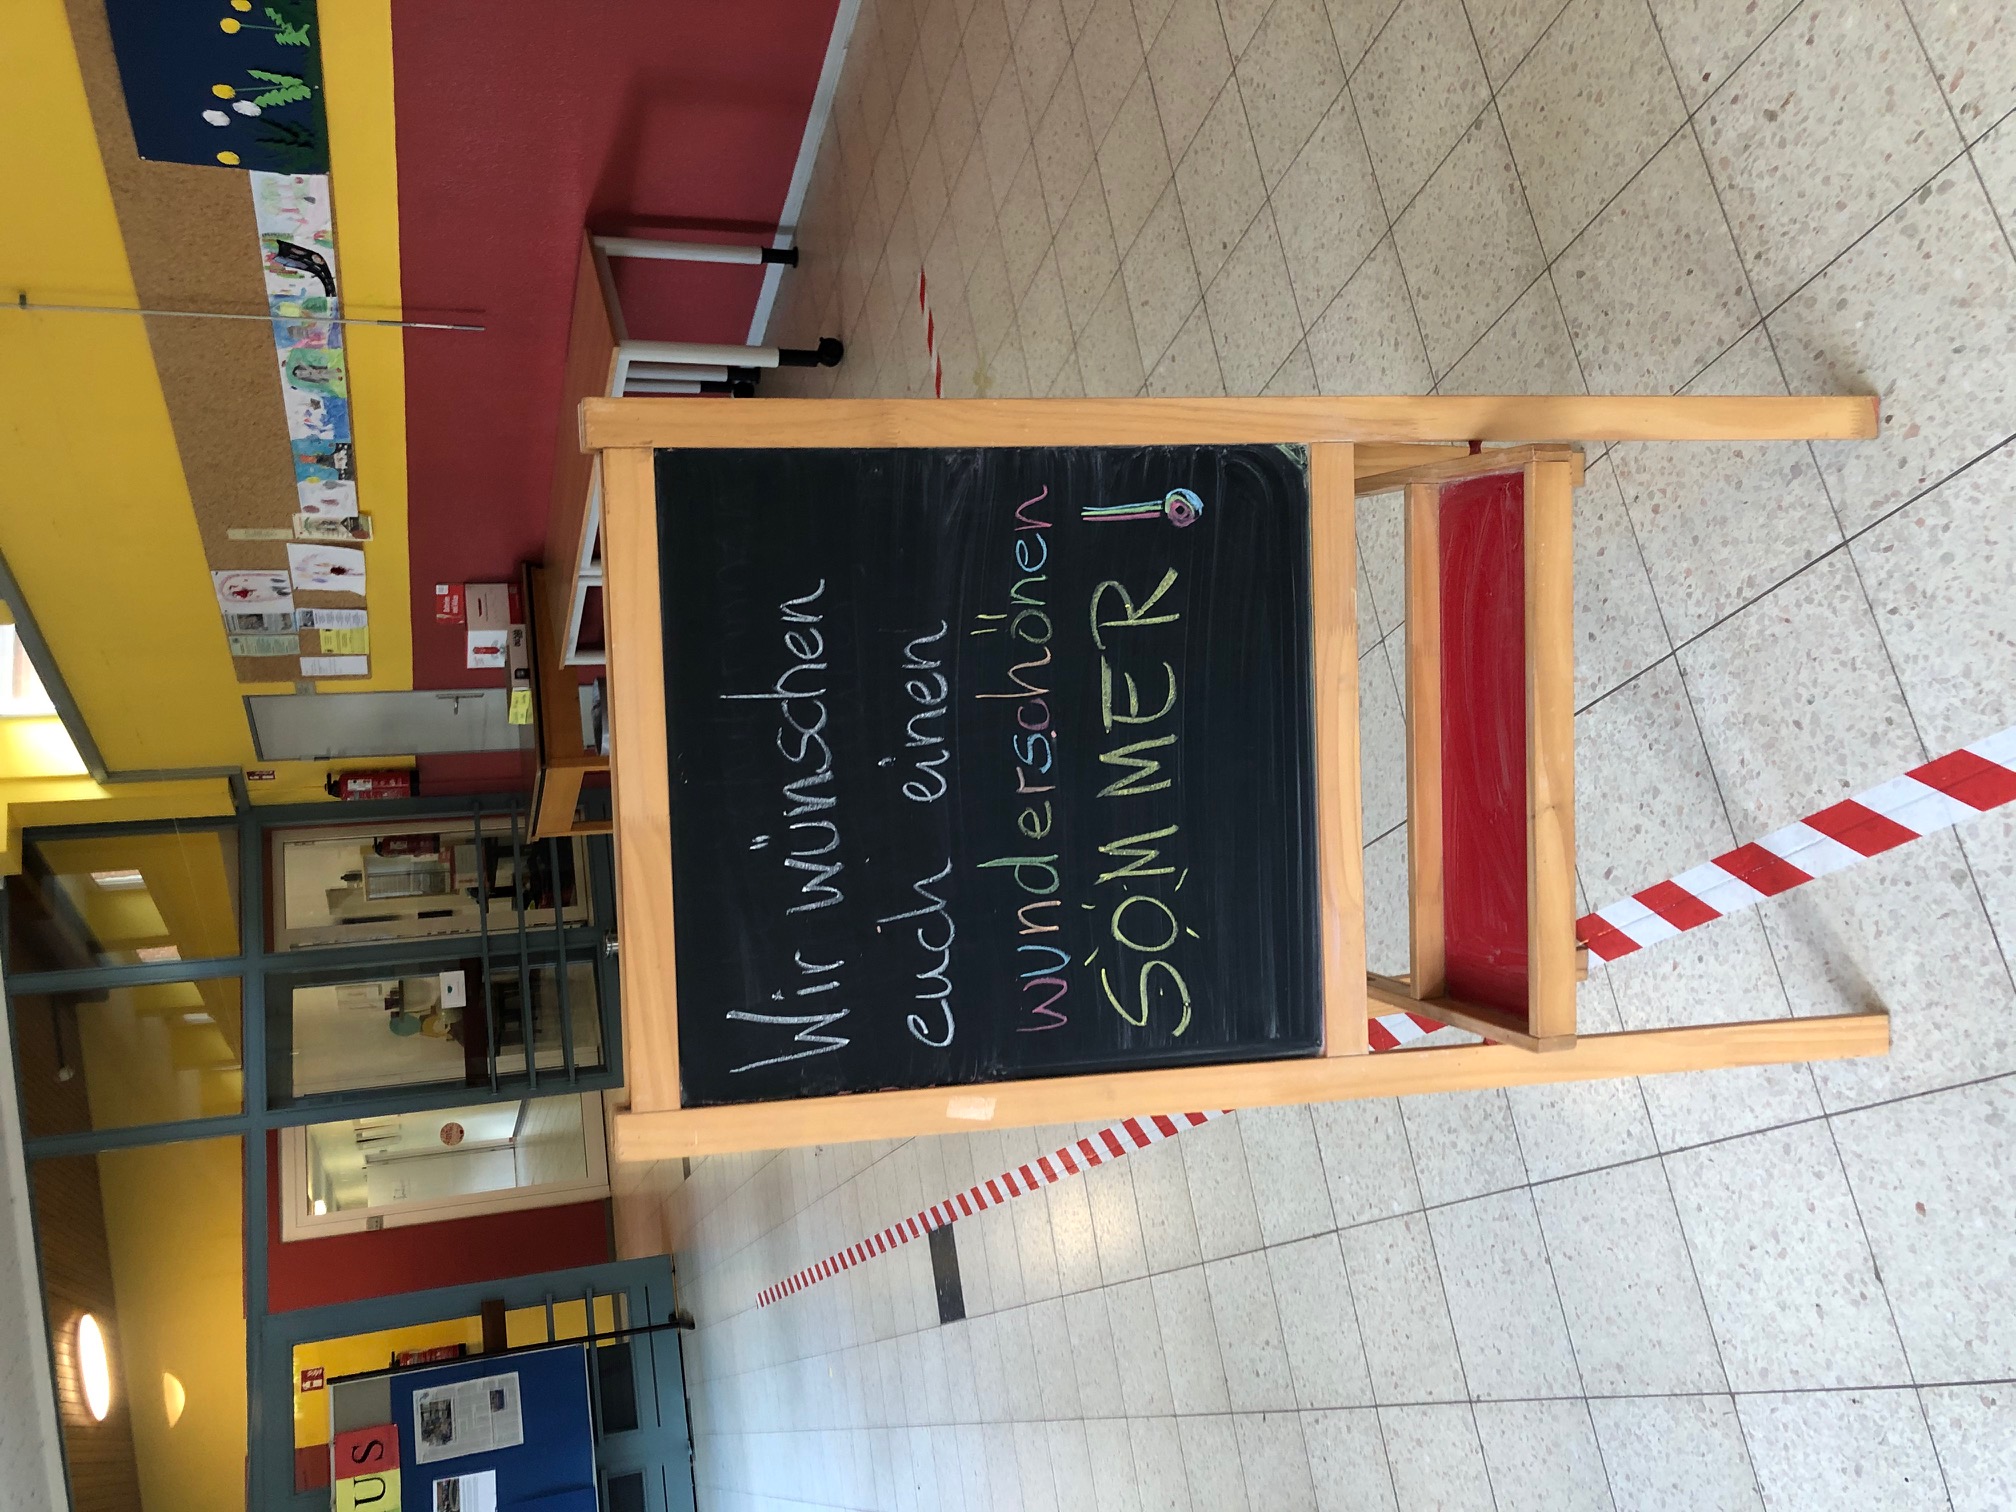 Wir wünschen
euch einen
wunderschönen
SOMMER!
US